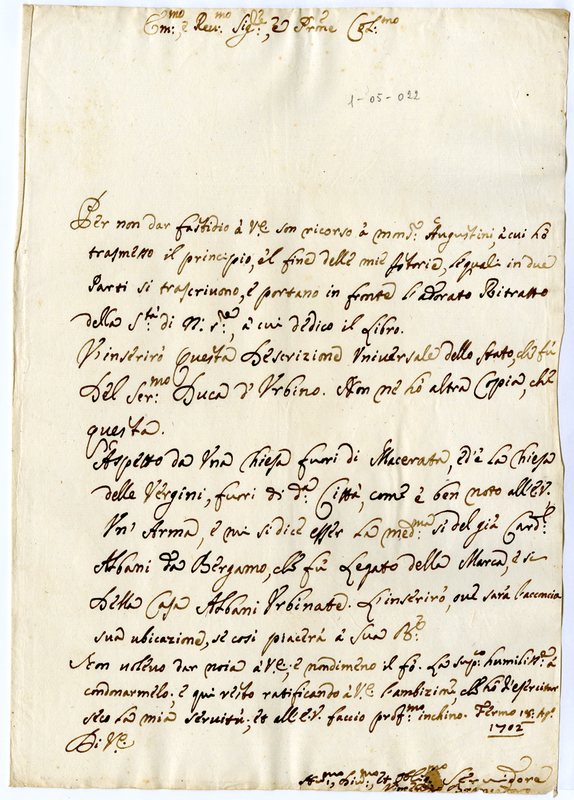 Em.mo, e Reu.mo Sig.re, e Prne Col.mo
1-05-022
Per non dar fastidio à V.E. son ricorso à mons.r Augustini, à cui hò
trasmesso il principio, e'l fine delle mie Istorie, le quali in due
Parti si trascriuono, e portano in fronte l'adorato Ritratto
della S.tà di N. S.re, à cui dedico il Libro.
V'inserirò questa Descrizione Vniuersale dello Stato, che fù
del Ser.mo Duca d'Vrbino. Non ne hò altra Copia, che
questa.
Aspetto da Vna Chiesa fuori di Macerata, ed'è la Chiesa
delle Vergini, fuori di d.a Città, come è ben noto all'E.V.
Vn'Arma, e mi si dice esser la med.ma si del già Card.l
Albani da Bergamo, che fù Legato della Marca, e si
della Casa Albani Vrbinate. L'inserirò, oue sarà l'acconcia
sua ubicazione, se così piacerà à Sua B.e
Non uoleuo dar noia à V.E.; e nondimeno il fò. La sup.co humiliss.e à
condonarmelo; e quì resto ratificando à V.E. l'ambizione, che hò d'esercitar
seco la mia seruitù; et all'E.V. faccio prof.mo inchino. Fermo 18: Ap.
1702
Di V.E.
Hu.mo, Diu.mo, et Obl.mo Seruidore